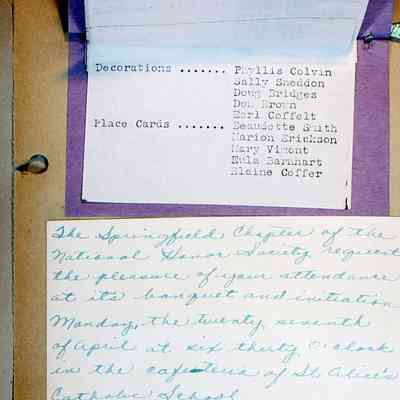 Decorations ....... Phyllis Colvin
Sally Sneddon
Doug Bridges
Don Brown
Earl Coffelt
Place Cards ....... Beaudette Smith
Marion Erickson
Mary Vimont
Eula Barnhart
Elaine Coffer
The Springfield Chapter of the
National Honor Society request
the pleasure of your attendance
at its banquet and initiation
Monday, the twenty seventh
of April at six thirty O'clock
in the cafeteria of St Alice's
Catholic School